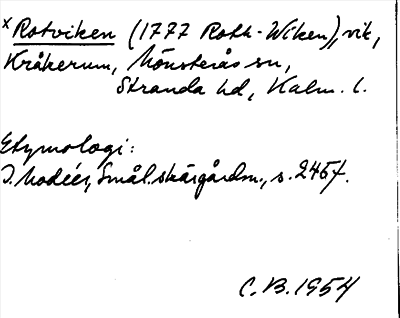 x Rotviken (1777 Roth-Wiken), vik,
Kråkerum, Mönsterås sn,
Stranda hd, Kalm. l.
Etymologi:
I. Modéer, Smål. skärgårdsn., s. 245 f.
C. B. 1954